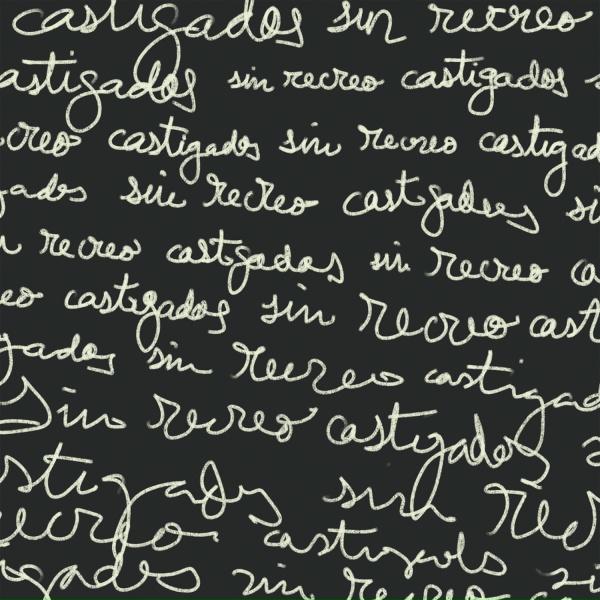 castigados sin recreo
astigados sin recreo castigados s
creo castigados sin recreo castigad
gados sin recreo castgadus si
n recreo castigados sin recreo ca
eo castigados sin recreo cast
gados sin recreo castigad
Sin recreo castigados
stigados sin rec
ecreo castigads
gados sin recreo